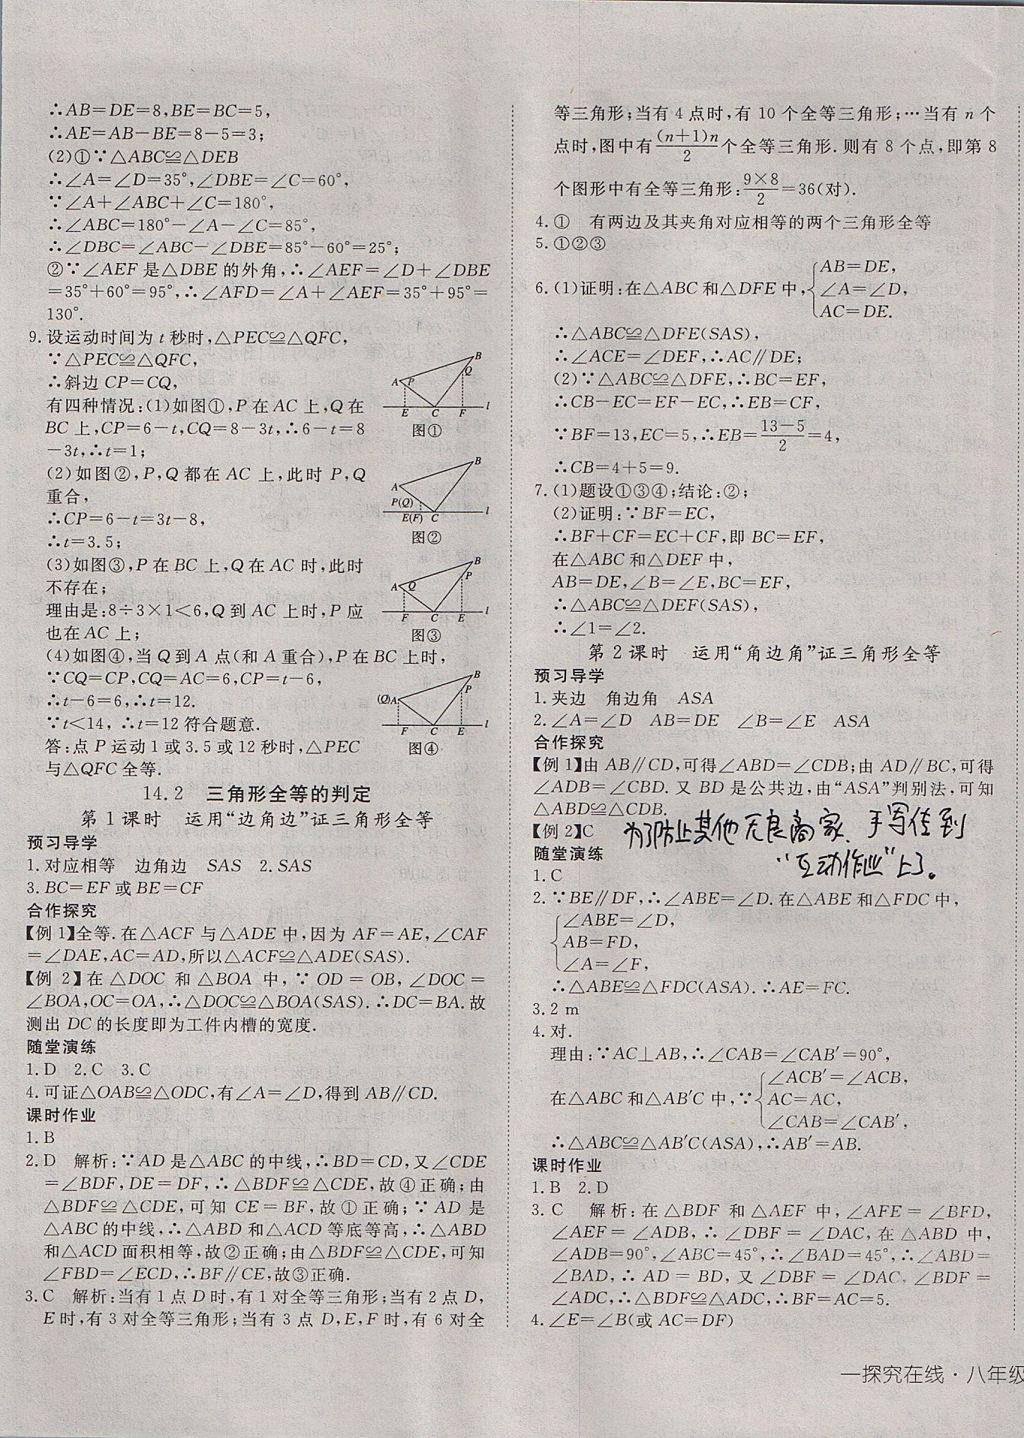 ∴AB=DE=8,BE=BC=5,
∴AE=AB-BE=8-5=3;
(2)①∵△ABC≌△DEB
∴∠A=∠D=35°,∠DBE=∠C=60°,
∵∠A+∠ABC+∠C=180°,
∴∠ABC=180°-∠A-∠C=85°,
∴∠DBC=∠ABC-∠DBE=85°-60°=25°;
②∵∠AEF是△DBE的外角,∴∠AEF=∠D+∠DBE
=35°+60°=95°,∴∠AFD=∠A+∠AEF=35°+95°=
130°.
9.设运动时间为t秒时,△PEC≌△QFC,
∵△PEC≌△QFC,
∴斜边CP=CQ,
有四种情况:(1)如图①,P在AC上,Q在
BC上,CP=6-t,CQ=8-3t,∴6-t=8
-3t,∴t=1;
(2)如图②,P,Q都在AC上,此时P,Q
重合,
∴CP=6-t=3t-8,
∴t=3.5;
(3)如图③,P在BC上,Q在AC时,此时
不存在;
理由是:8÷3×1<6,Q到AC上时,P应
也在AC上;
(4)如图④,当Q到A点(和A重合),P在BC上时,
∵CQ=CP,CQ=AC=6,CP=t-6,
∴t-6=6,∴t=12.
∵t<14,∴t=12符合题意.
答:点P运动1或3.5或12秒时,△PEC
与△QFC全等.
A P B Q E C F l
图①
A B P(Q) E(F) C l
图②
A Q B P F C E l
图③
(Q)A B P F C E l
图④
14.2 三角形全等的判定
第1课时 运用“边角边”证三角形全等
预习导学
1.对应相等 边角边 SAS 2.SAS
3.BC=EF或BE=CF
合作探究
【例1】全等.在△ACF与△ADE中,因为AF=AE,∠CAF
=∠DAE,AC=AD,所以△ACF≌△ADE(SAS).
【例2】在△DOC和△BOA中,∵OD=OB,∠DOC=
∠BOA,OC=OA,∴△DOC≌△BOA(SAS).∴DC=BA.故
测出DC的长度即为工件内槽的宽度.
随堂演练
1.D 2.C 3.C
4.可证△OAB≌△ODC,有∠A=∠D,得到AB∥CD.
课时作业
1.B
2.D 解析:∵AD是△ABC的中线,∴BD=CD,又∠CDE
=∠BDF,DE=DF,∴△BDF≌△CDE,故④正确;由
△BDF≌△CDE,可知CE=BF,故①正确;∵AD是
△ABC的中线,∴△ABD和△ACD等底等高,∴△ABD
和△ACD面积相等,故②正确;由△BDF≌△CDE,可知
∠FBD=∠ECD,∴BF∥CE,故③正确.
3.C 解析:当有1点D时,有1对全等三角形;当有2点D,
E时,有3对全等三角形;当有3点D,E,F时,有6对全
等三角形;当有4点时,有10个全等三角形;…当有n个
点时,图中有(n+1)n/2个全等三角形.则有8个点,即第8
个图形中有全等三角形:9×8/2=36(对).
4.① 有两边及其夹角对应相等的两个三角形全等
5.①②③
6.(1)证明:在△ABC和△DFE中,{AB=DE,
∠A=∠D,
AC=DE.
∴△ABC≌△DFE(SAS),
∴∠ACE=∠DEF,∴AC∥DE;
(2)∵△ABC≌△DFE,∴BC=EF,
∴CB-EC=EF-EC,∴EB=CF,
∵BF=13,EC=5,∴EB=13-5/2=4,
∴CB=4+5=9.
7.(1)题设①③④;结论:②;
(2)证明:∵BF=EC,
∴BF+CF=EC+CF,即BC=EF,
在△ABC和△DEF中,
AB=DE,∠B=∠E,BC=EF,
∴△ABC≌△DEF(SAS),
∴∠1=∠2.
第2课时 运用“角边角”证三角形全等
预习导学
1.夹边 角边角 ASA
2.∠A=∠D AB=DE ∠B=∠E ASA
合作探究
【例1】由AB∥CD,可得∠ABD=∠CDB;由AD∥BC,可得
∠ADB=∠CBD.又BD是公共边,由“ASA”判别法,可知
△ABD≌△CDB.
【例2】C
为了防止其他无良商家、手写传到
“互动作业”上了。
随堂演练
1.C
2.∵BE∥DF,∴∠ABE=∠D.在△ABE和△FDC中,
{∠ABE=∠D,
AB=FD,
∠A=∠F,
∴△ABE≌△FDC(ASA).∴AE=FC.
3.2 m
4.对.
理由:∵AC⊥AB,∴∠CAB=∠CAB′=90°,
在△ABC和△AB′C中,∵{∠ACB′=∠ACB,
AC=AC,
∠CAB=∠CAB′,
∴△ABC≌△AB′C(ASA),∴AB′=AB.
课时作业
1.B 2.D
3.C 解析:在△BDF和△AEF中,∠AFE=∠BFD,
∠AEF=∠ADB,∴∠DBF=∠DAC,在△ABD中,
∠ADB=90°,∠ABC=45°,∴∠BAD=45°,∴∠ABD=
∠BAD,∴AD=BD,又∠DBF=∠DAC,∠BDF=
∠ADC,∴△BDF≌△ADC,∴BF=AC=5.
4.∠E=∠B(或AC=DF)
一探究在线·八年级